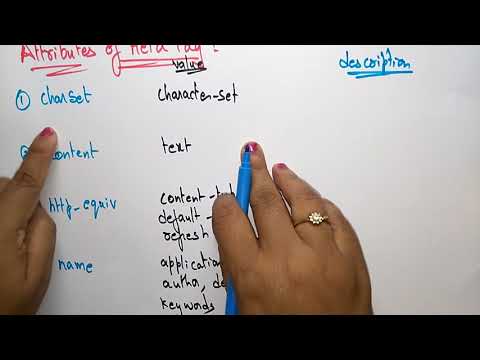 Attributes of Meta Tag :
value
description
① charset character-set
content text
http-equiv content-
default-
refresh
name application
author,
keywords